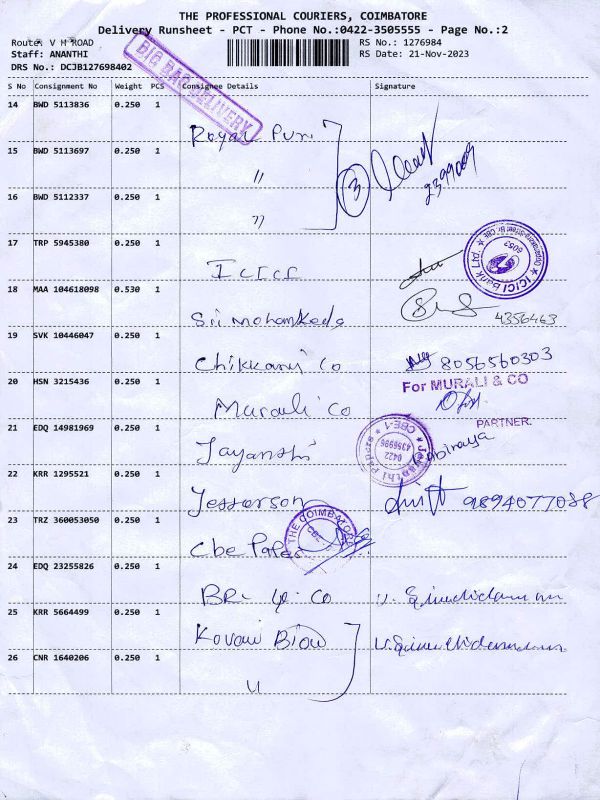 THE PROFESSIONAL COURIERS, COIMBATORE
Delivery Runsheet - PCT - Phone No.:0422-3505555 - Page No.:2
Route: V H ROAD
RS No.: 1276984
Staff: ANANTHI
RS Date: 21-Nov-2023
DRS No.: DCJB127698402
BIG BAG DELIVERY
S No Consignment No Weight PCS Consignee Details Signature
14 BWD 5113836 0.250 1
Royal Puri
15 BWD 5113697 0.250 1
"
3
2399009
16 BWD 5112337 0.250 1
"
17 TRP 5945380 0.250 1
ICICI
ICICI Bank Ltd
6053
18 MAA 104618098 0.530 1
Sri
4356463
19 SVK 10446047 0.250 1
Chikkani Co
8056560303
20 HSN 3215436 0.250 1
Murali Co
For MURALI & CO
PARTNER.
21 EDQ 14981969 0.250 1
Jayanthi
0422
4356996
CBE-1
22 KRR 1295521 0.250 1
Jefferson
9894077088
23 TRZ 360053050 0.250 1
Cbe Paper
THE COIMBATORE
24 EDQ 23255826 0.250 1
Co
25 KRR 5664499 0.250 1
Kovai
26 CNR 1640206 0.250 1
"